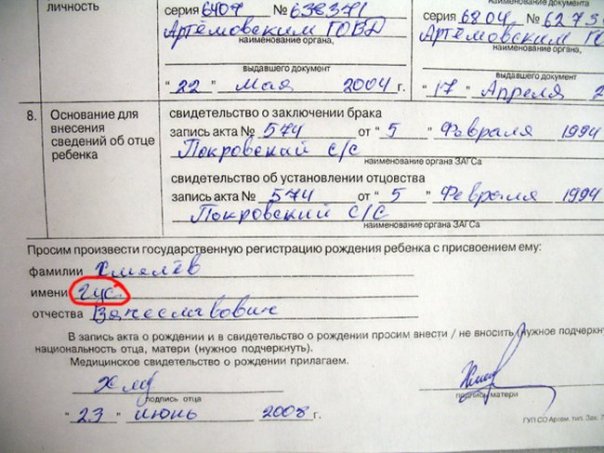 личность
серия 6404 № 638371
Артёмовским ГОВД
наименование органа,
выдавшего документ
"22" Мая 2004 г.
наименование документа
серия 6804 № 6275
Артёмовским ГО
наименование органа,
выдавшего документ
"17" Апреля 2
8. Основание для внесения сведений об отце ребенка
свидетельство о заключении брака
запись акта № 574 от "5" Февраля 1994
Покровский с/с
наименование органа ЗАГСа
свидетельство об установлении отцовства
запись акта № 574 от "5" Февраля 1994
Покровский с/с
наименование органа ЗАГСа
Просим произвести государственную регистрацию рождения ребенка с присвоением ему:
фамилии Хмелёв
имени Гус.
отчества Вячеславович
В запись акта о рождении и в свидетельство о рождении просим внести / не вносить (нужное подчеркн
национальность отца, матери (нужное подчеркнуть).
Медицинское свидетельство о рождении прилагаем.
подпись отца
подпись матери
"23" июнь 2008 г.
ГУП СО Артем. тип. Зак.